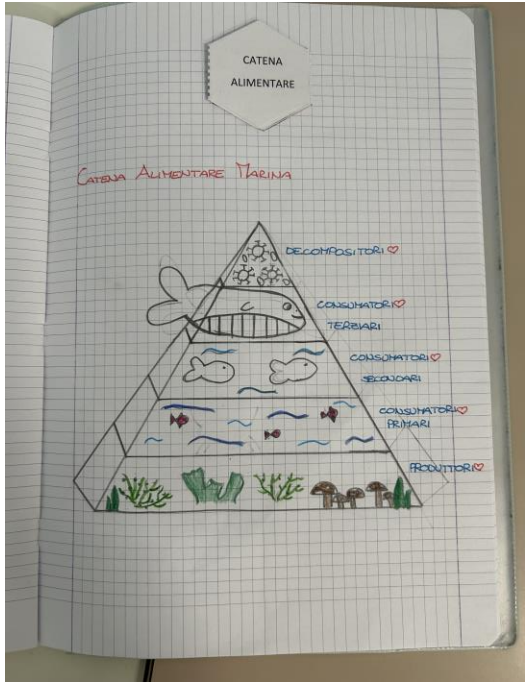 CATENA
ALIMENTARE
CATENA ALIMENTARE MARINA
DECOMPOSITORI
CONSUMATORI
TERZIARI
CONSUMATORI
SECONDARI
CONSUMATORI
PRIMARI
PRODUTTORI